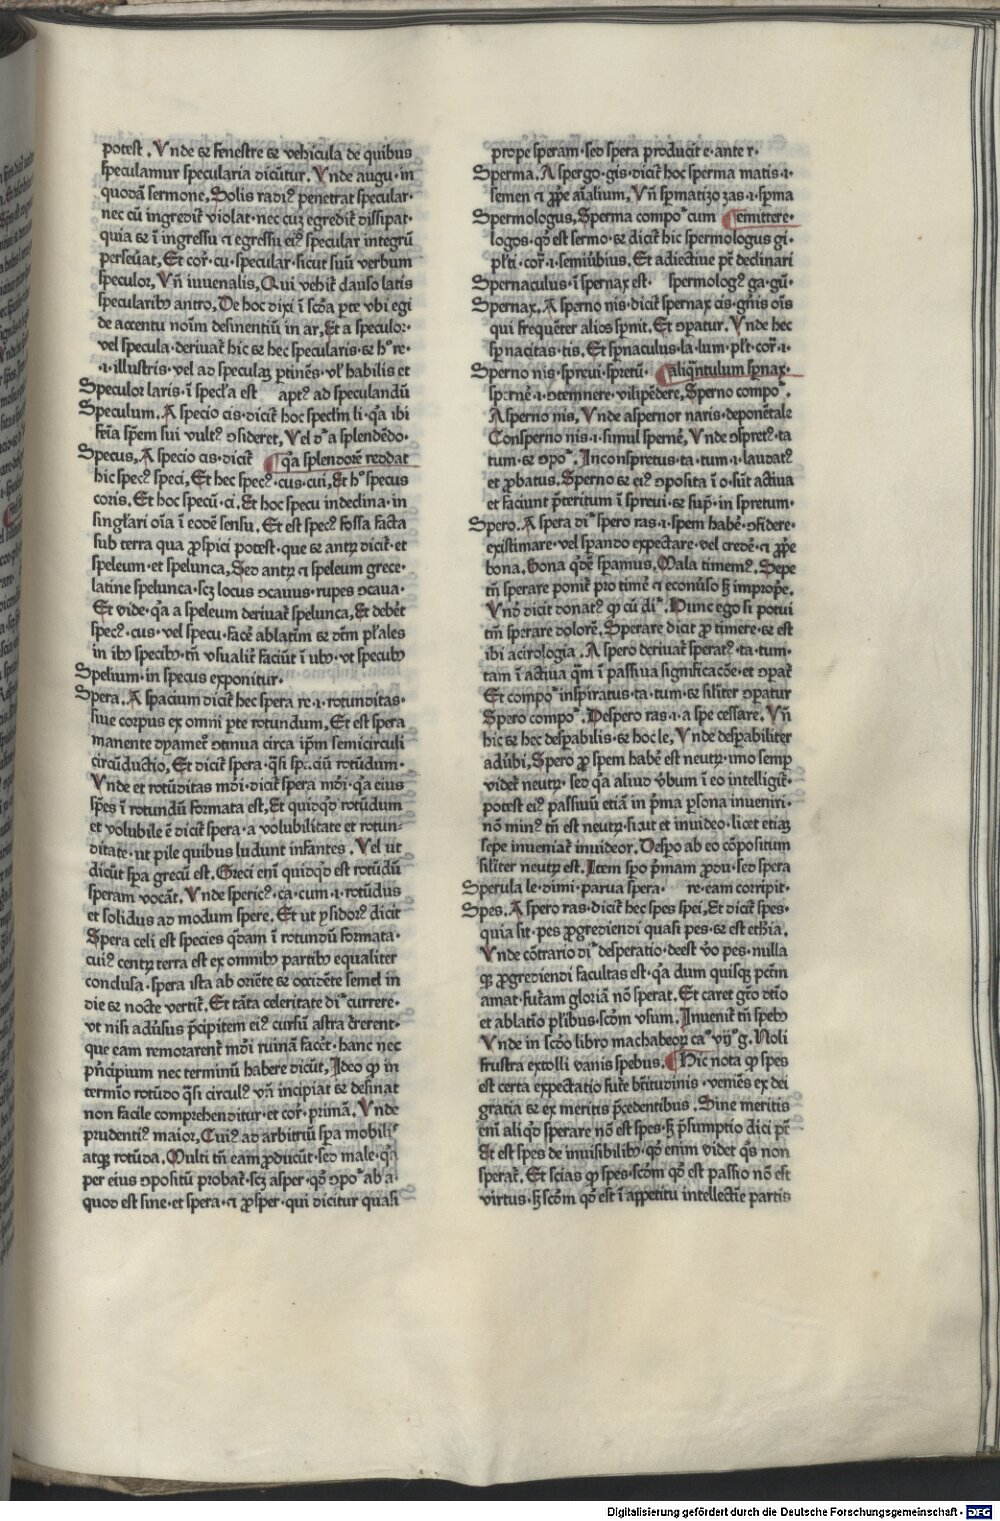 potest. Vnde & fenestre & vehicula de quibus
speculamur specularia dicūtur. Vnde augu· in
quodā sermone. Solis radiꝰ penetrat specular·
nec cū ingredit᷑ violat· nec cuꝫ egredit᷑ dissipat·
quia & ī ingressu ⁊ egressu eiꝰ specular integrū
perseūat. Et cor᷑· cu· specular· sicut suū verbum
speculor. Vñ iuvenalis. Qui vehit᷑ clauso latis
specularibꝯ antro. De hoc dixi ī scd̄a ꝑte vbi egi
de accentu noīm desinentiū in ar. Et a speculor·
vel specula· derivat᷑ hic & hec specularis· & hͦ re·
·i· illustris· vel ad speculaꝫ ꝑtinēs· vl᷑ habilis et
Speculor laris· i specl᷑a est aptꝰ ad speculandū
Speculum. A specio cis· dicit᷑ hoc specl᷑m li· qᷓa ibi
fēīa sp̄em sui vultꝰ ↄsideret. Vel dr᷑ a splendēdo·
Specus. A specio cis· dicit᷑ ¶ qᷓa splendorē reddat
hic specꝰ speci. Et hec specꝰ· cus· cui. Et hͦ specus
coris. Et hoc specū· ci. Et hoc specu indeclina· in
singl᷑ari oīa ī eodē sensu. Et est specꝰ fossa facta
sub terra qua ꝓspici potest· que & antꝝ dicit᷑· et
speleum· et spelunca. Sed antꝝ ⁊ speleum grece·
latine spelunca· scꝫ locus ↄcauus· rupes ↄcaua·
Et vide· qᷓa a speleum derivat᷑ spelunca. Et debēt
specꝰ· cus· vel specu· facē᷑ ablatīm & dt̄m pl᷑ales
in ibꝯ specibꝯ· tn̄ vsualit᷑ faciūt ī ubꝯ· vt specubꝯ
Spelium· in specus exponitur·
Spera. A spacium dicit᷑ hec spera re· ·i· rotunditas·
siue corpus ex omni ꝑte rotundum. Et est spera
manente dyamet᷑ↄ ↄtinua circa ip̄m semicirculi
circūductio. Et dicit᷑ spera· qᷓsi spaciū rotūdum·
Vnde et rotūditas mōi· dicit᷑ spera mōi· qᷓa eius
spēs ī rotundū formata est. Et quidqd̄ rotūdum
et volubile ē dicit᷑ spera· a volubilitate et rotun-
ditate· ut pile quibus ludunt infantes. Vel ut
dicūt spa grecū est. Greci enī quidqd̄ est rotūdū
speram vocāt. Vnde spericꝰ· ca· cum· ·i· rotūdus
et solidus ad modum spere. Et ut ysidorꝰ dicit
Spera celi est species qᷓdam ī rotundū formata·
cuiꝰ centꝝ terra est ex omnibꝯ partibꝯ equaliter
conclusa· spera ista ab oriēte & occidēte semel in
die & nocte vertit᷑. Et tāta celeritate dr᷑ currere·
vt nisi adūsus p̄cipitem eiꝰ cursū astra c᷑rerent·
que eam remorarent᷑ mōi ruinā facēt· hanc nec
pͥncipium nec terminū habere dicūt. Ideo ꝙ in
termīo rotūdo qᷓsi circulꝰ vñ incipiat & desinat
non facile comprehenditur· et cor᷑· primā. Vnde
prudentiꝰ maior. Cuiꝰ ad arbitriū spa mobilis
atqꝫ rotūda. Multi tn̄ eam ꝓducūt· sed male· qᷓa
per eius ↄpositū probat᷑· scꝫ asper· qd̄ ↄpoᷣ ab a·
quod est sine· et spera· ⁊ ꝓsper· qui dicitur quasi
prope speram· sed spera producit e· ante r·
Sperma. A spergo· gis· dicit᷑ hoc sperma matis· ·i·
semen ⁊ ꝓpe aīalium. Vñ spmatizo zas· ·i· spma
Spermologus. Sperma compoᷣ cum ¶ emittere·
logos· qd̄ est sermo· & dicit᷑ hic spermologus gi·
pl᷑ti· cor᷑· ·i· semiūbius. Et adiectiue pt᷑ declinari
Spernaculus· ī spernax est· spermologꝰ ga· gū·
Spernax. A sperno nis· dicit᷑ spernax cis· gn̄is oīs
qui frequēter alios spnit. Et ↄpatur. Vnde hec
spnacitas· tis. Et spnaculus· la· lum· pl᷑t· cor᷑· ·i·
Sperno nis· spreui· spretū· ¶ aliqᷓntulum spnax·
spernē᷑· ·i· ↄtemnere· vilipēdere. Sperno compoᷣ·
A sperno nis. Vnde aspernor naris· deponētale
Consperno nis· ·i· simul spernē᷑. Vnde ↄspretꝰ· ta
tum· & ↄpoᷣ. Inconspretus· ta· tum· ·i· laudatꝰ
et ꝓbatus. Sperno & eiꝰ ↄposita ī o· sūt activa
et faciunt p̄teritum ī spreui· & sup̄· in spretum·
Spero. A spera dr᷑ spero ras· ·i· spem habē᷑· ↄfidere·
existimare· vel spando expectare· vel credē᷑· ⁊ ꝓpe
bona. Bona qᷓdē spamus. Mala timemꝰ. Sepe
tn̄ sperare ponit᷑ pro timē᷑ ⁊ econūso sꝫ improp̄e·
Vnd̄ dicit donatꝰ ꝙ cū dr᷑. Hunc ego si potui
tm̄ sperare dolorē. Sperare dicit ꝓ timere· & est
ibi acirologia. A spero derivat᷑ speratꝰ· ta· tum·
tam ī activa qᷓm ī passiua significacōe· et ↄpat᷑
Et compoᷣ inspiratus· ta· tum· & silīter ↄpatur
Spero compoᷣ. Despero ras· ·i· a spe cessare. Vñ
hic & hec despabilis· & hoc le. Vnde despabiliter
adūbi. Spero ꝓ spem habē᷑ est neutꝝ· imo semp
videt᷑ neutꝝ· sed qᷓa aliud v̄bum ī eo intelligit᷑·
potest eiꝰ passiuū etiā in pͥma ꝑsona inveniri·
nō minꝰ tn̄ est neutꝝ· sicut et invideo· licet etiaꝫ
sepe inveniat᷑ invideor. Despo ab eo cōpositum
silīter neutꝝ est. Item spo pͥmam ꝓdu· sed spera
Sperula le· dimi· parua spera· re· eam corripit·
Spes. A spero ras· dicit᷑ hec spes spei. Et dicit᷑ spes·
quia sit· pes ꝓgrediendi quasi pes· & est ethīa.
Vnde cōtrario dr᷑ desperatio· deest v̄o pes· nulla
qꝫ ꝓgrediendi facultas est· qᷓa dum quisqꝫ pctm̄
amat· fut᷑am gloriā nō sperat. Et caret gtō dtīo
et ablatio pl᷑ibus· scd̄m vsum. Invenit᷑ tn̄ spebꝯ
Vnde in scd̄o libro machabeoꝝ caᷣ vijᷣ g. Noli
frustra extolli vanis spebus. ¶ Hic nota ꝙ spes
est certa expectatio fut᷑e bt̄itudinis· veniēs ex dei
gratia & ex meritis p̄cedentibus. Sine meritis
enī aliqd̄ sperare nō est spes· sꝫ p̄sumptio dici pt᷑
Et est spes de inuisibilibꝯ· qd̄ enim videt qͥs non
sperat᷑. Et scias ꝙ spes· scd̄m qd̄ est passio nō est
virtus· sꝫ scd̄m qd̄ est ī appetitu intellectie partis
Digitalisierung gefördert durch die Deutsche Forschungsgemeinschaft - DFG